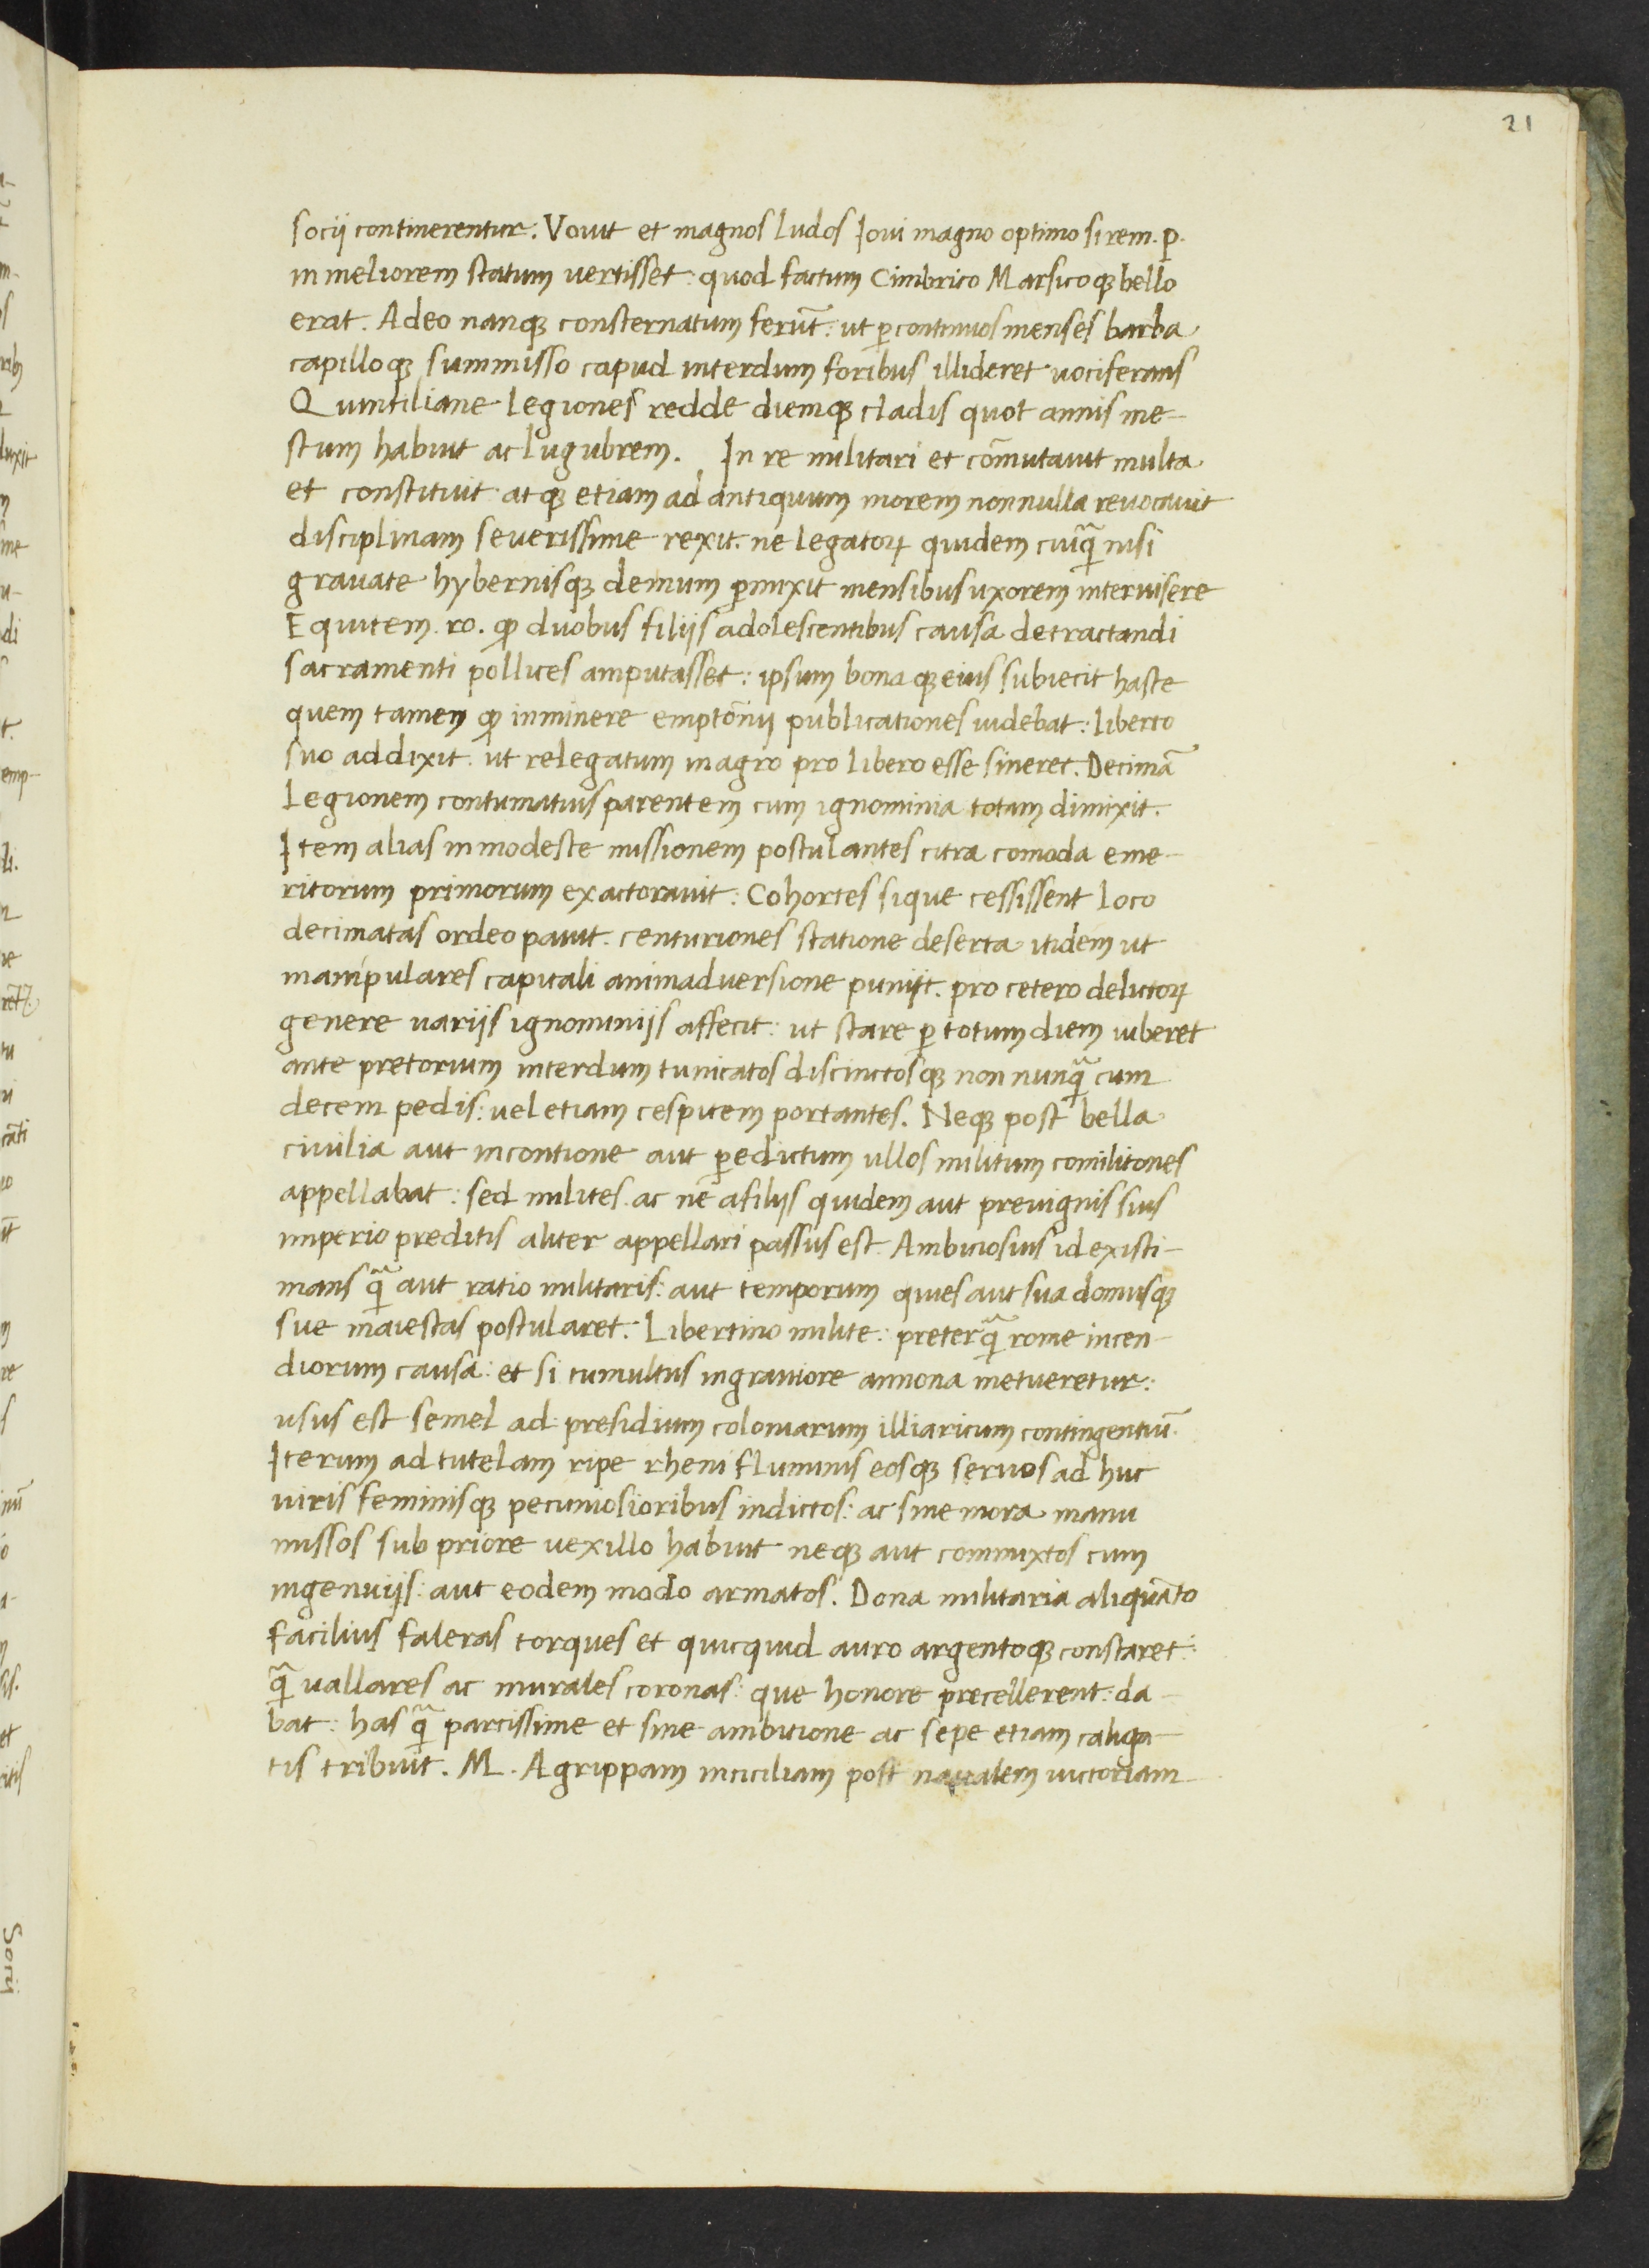 21
socij continerentur. Vouit et magnos ludos Ioui magno optimo si rem. p.
in meliorem statum uertisset: quod factum Cimbrico Marsicoqꝫ bello
erat. Adeo nanqꝫ consternatum ferūt: ut ꝑ continuos menses barba
capilloqꝫ summisso capud interdum foribus illideret uociferans
Quintiliane legiones redde diemqꝫ cladis quot annis me-
stum habuit ac lugubrem. In re militari et cōmutauit multa
et constituit: atqꝫ etiam ad antiquum morem nonnulla reuocauit
disciplinam seuerissime rexit. ne legatoꝝ quidem cuiq̃ nisi
grauate hybernisqꝫ demum ꝑmixit mensibus uxorem interuisere
Equitem. ro. ꝙ duobus filijs adolescentibus causa detractandi
sacramenti pollices amputasset: ipsum bonaqꝫ eius subiecit haste
quem tamen ꝙ inminere emptōnij publicationes uidebat: liberto
suo addixit. ut relegatum in agro pro libero esse sineret. Decimā
Legionem contumatius parentem cum ignominia totam dimixit.
Item alias inmodeste missionem postulantes citra comoda eme-
ritorum primorum exactorauit: Cohortes si que cessissent loco
decimatas ordeo pauit. centuriones statione deserta itidem ut
manipulares capitali animaduersione punijt. pro cetero delictoꝝ
genere uarijs ignominijs affecit: ut stare ꝑ totum diem iuberet
ante pretorium interdum tunicatos discinctosqꝫ non nunq̃ cum
decem pedis: uel etiam cespitem portantes. Neqꝫ post bella
ciuilia aut in contione aut ꝑ edictum ullos militum comilitones
appellabat: sed milites. ac nē a filijs quidem aut preuignis suis
imperio preditis aliter appellari passus est. Ambitiosius id existi-
mans q̃ aut ratio militaris: aut temporum quies aut sua domusqꝫ
sue maiestas postularet. Libertino milite: preterq̃ rome incen-
diorum causa: et si tumultus in grauiore annona metueretur:
usus est semel ad presidium coloniarum illiaricum contingentiū.
Iterum ad tutelam ripe rheni fluminis eosqꝫ seruos ad huc
uiris feminisqꝫ pecuniosioribus indictos: ac sine mora manu
missos sub priore uexillo habuit neqꝫ aut commixtos cum
ingenuijs: aut eodem modo armatos. Dona militaria aliquāto
facilius faleras torques et quicquid auro argentoqꝫ constaret:
q̃ uallares ac murales coronas: que honore precellerent: da-
bat: has q̃ parcissime et sine ambitione ac sepe etiam caliga-
tis tribuit. M. Agrippam in ciciliam post naualem uictoriam